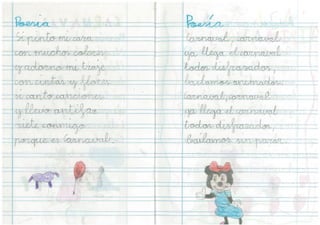 Poesía
Si pinto mi cara
con muchos colores
y adorno mi traje
con cintas y flores
si canto canciones
y llevo antifaz
vente conmigo
porque es Carnaval.
Poesía
Carnaval, carnaval
ya llega el carnaval
todos disfrazados,
bailamos animados.
Carnaval, carnaval
ya llega el carnaval
todos disfrazados,
bailamos sin parar.